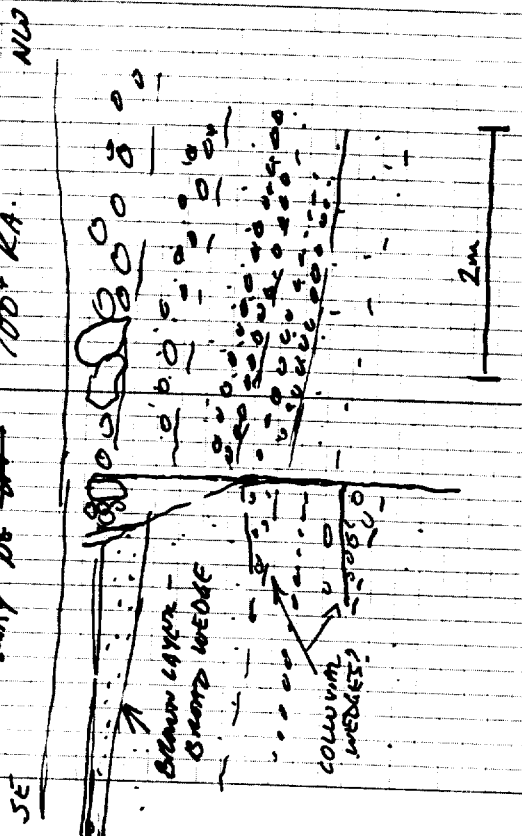 SE
NW
100+ KA.
BROWN LAYER -
BROAD WEDGE
COLLUVIAL
WEDGES?
2m